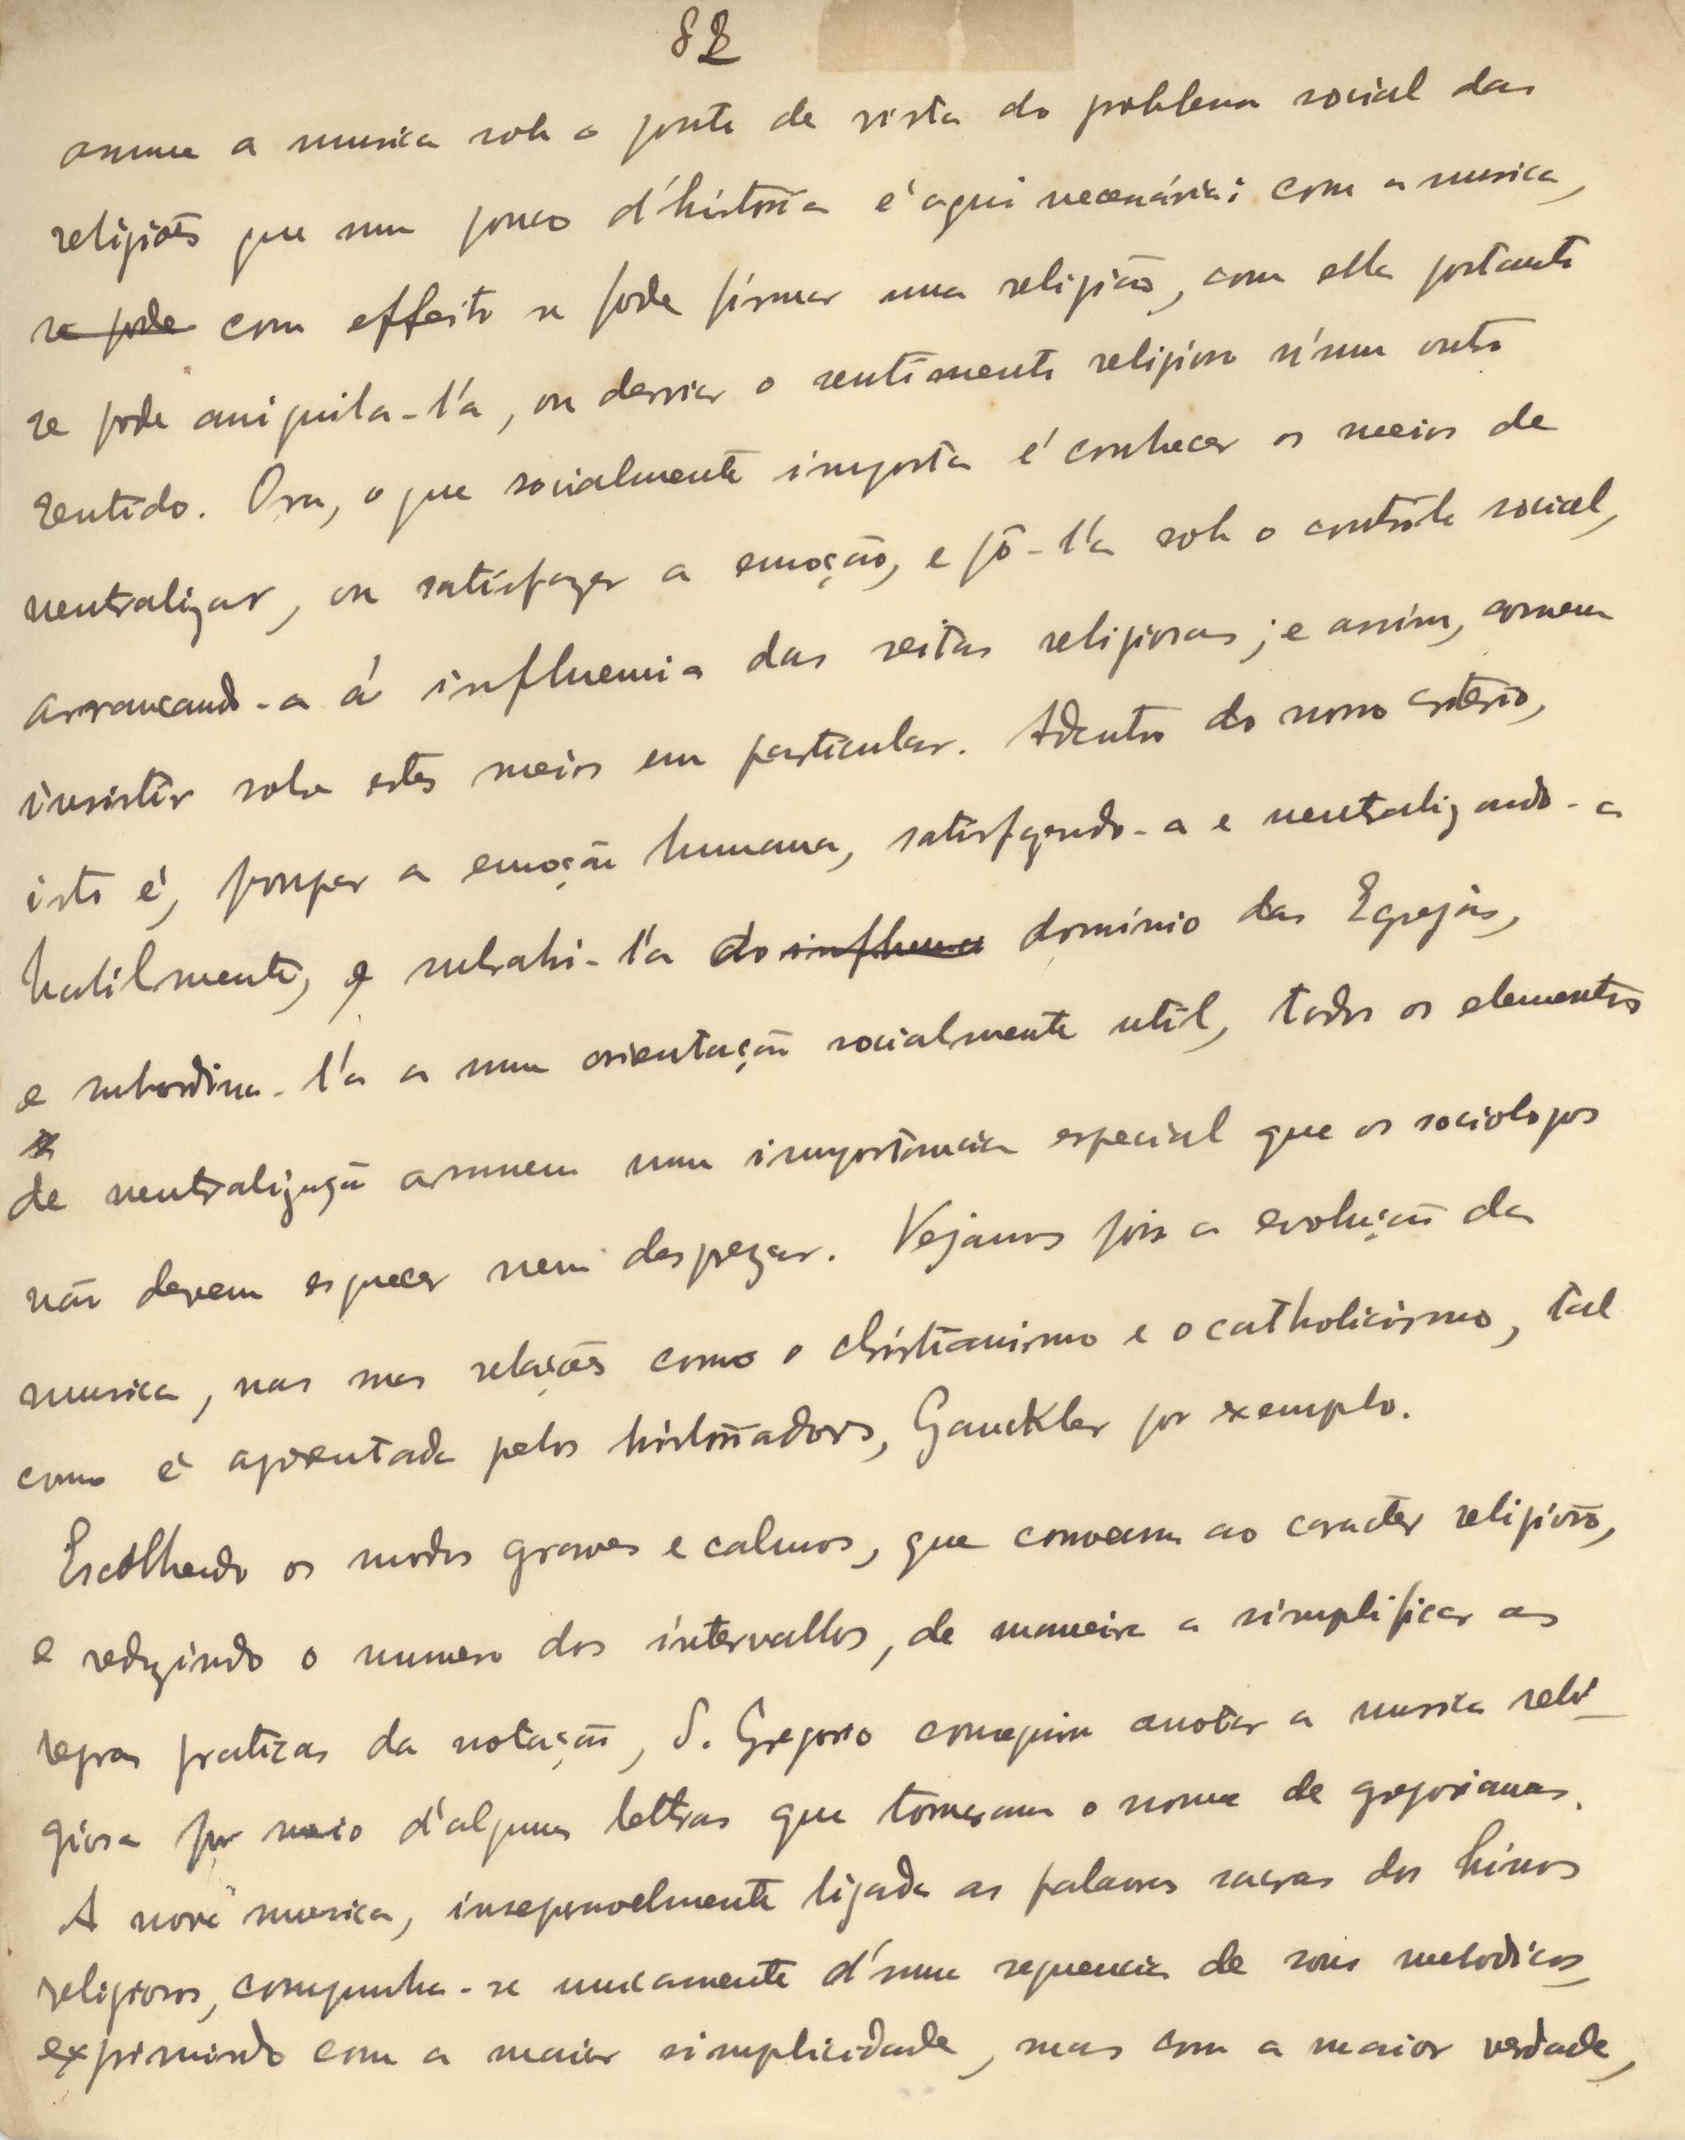 82
assume a musica sob o ponto de vista do problema social das
religiões que um pouco d'historia é aqui necessária: com a musica,
se pode com effeito se pode firmar uma religião, com ella portanto
se pode aniquila-l'a, ou desviar o sentimento religioso n'um outro
sentido. Ora, o que socialmente importa é conhecer os meios de
neutralizar, ou satisfazer a emoção, e pô-l'a sob o contrôle social,
arrancando-a á influencia das seitas religiosas; e assim, convem
insistir sobre estes meios em particular. Adentro do nosso criterio,
isto é, poupar a emoção humana, satisfazendo-a e neutralizando-a
habilmente, e subtrahi-l'a do influencia dominio das Egrejas,
e subordina-l'a a uma orientação socialmente util, todos os elementos
de neutralização assumem uma importancia especial que os sociologos
não devem esquecer nem desprezar. Vejamos pois a evolução da
musica, nas suas relações como o christianismo e o catholicismo, tal
como é apresentada pelos historiadores, Gauckler por exemplo.
Escolhendo os modos graves e calmos, que conveem ao caracter religioso,
e reduzindo o numero dos intervallos, de maneira a simplificar as
regras praticas da notação, S. Gregorio conseguiu anotar a musica reli-
giosa por meio d'algumas lettras que tomaram o nome de gregorianas.
A nova musica, inseparavelmente ligada as palavras sacras dos hinos
religiosos, compunha-se unicamente d'uma sequencia de sons melodicos,
exprimindo com a maior simplicidade, mas com a maior verdade,